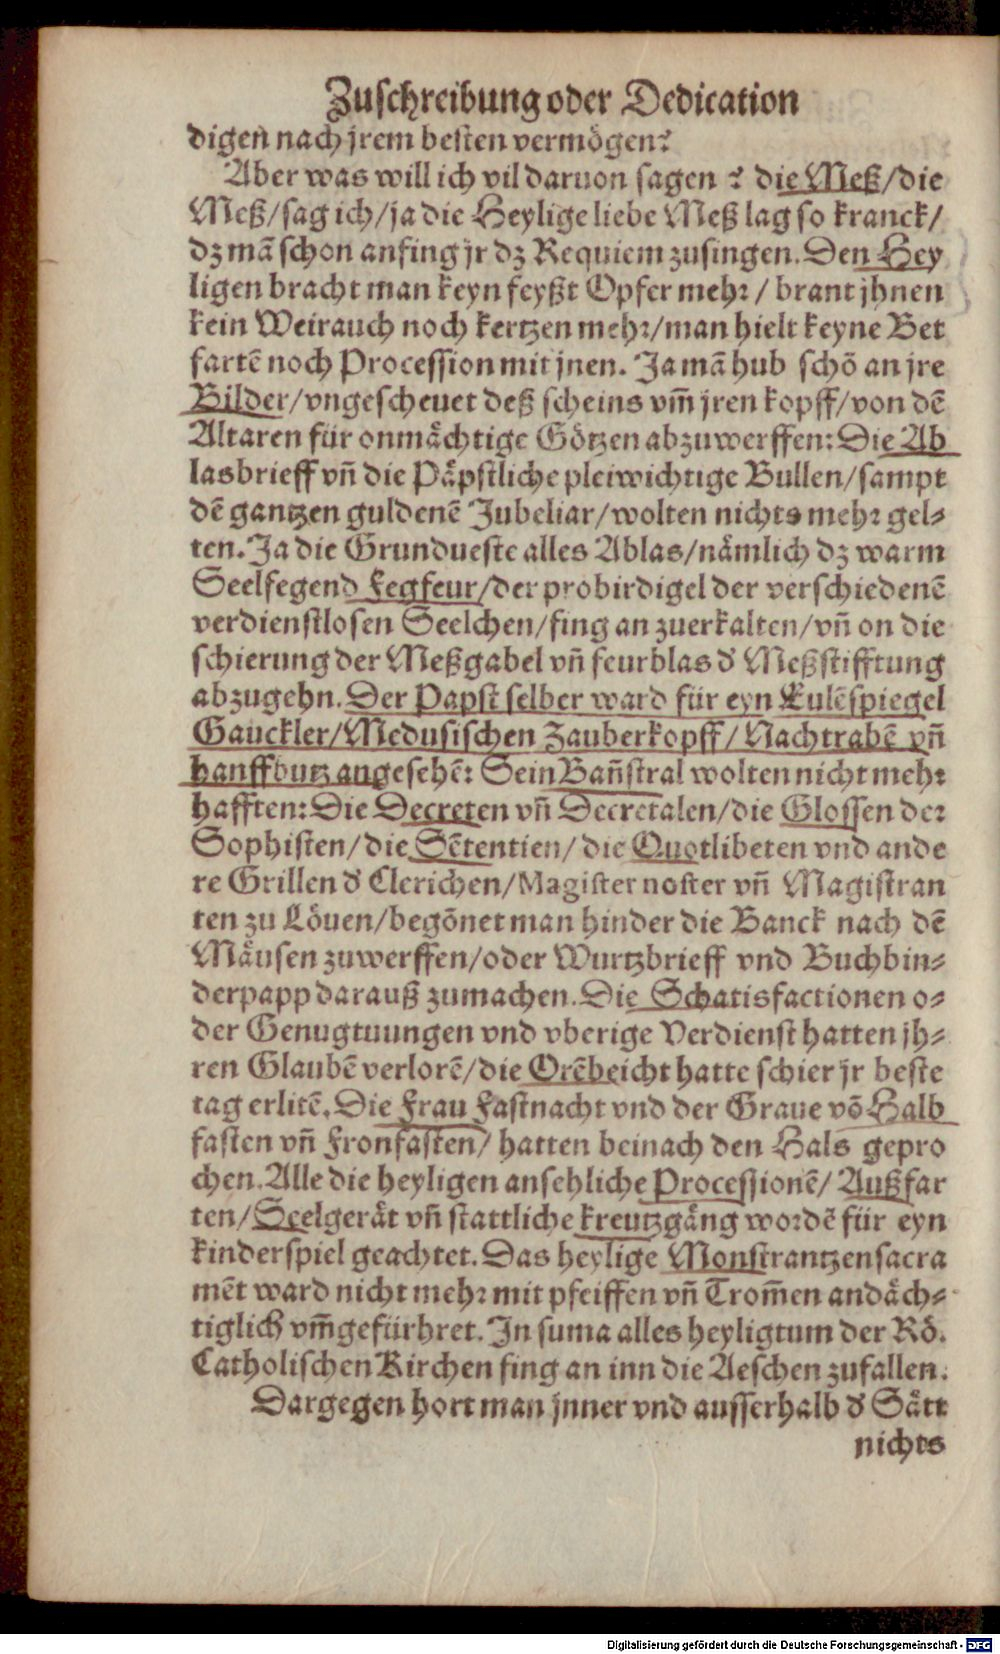 Zuschreibung oder Dedication
digen nach jrem besten vermögen?
Aber was will ich vil daruon sagen ? die Meß/die
Meß/sag ich/ja die Heylige liebe Meß lag so kranck/
dz mā schon anfing jr dz Requiem zusingen. Den Hey
ligen bracht man keyn feyßt Opfer mehr / brant jhnen
kein Weirauch noch kertzen mehr/man hielt keyne Bet
fartē noch Procession mit jnen. Ja mā hub schō an jre
Bilder/vngescheuet deß scheins vm̃ jren kopff/von dē
Altaren für onmächtige Götzen abzuwerffen: Die Ab
lasbrieff vñ die Päpstliche pleiwichtige Bullen/sampt
dē gantzen guldenē Jubeliar/wolten nichts mehr gel⸗
ten. Ja die Grundueste alles Ablas/nämlich dz warm
Seelfegend Fegfeur/der probirdigel der verschiedenē
verdienstlosen Seelchen/fing an zuerkalten/vñ on die
schierung der Meßgabel vñ feurblas d̓ Meßstifftung
abzugehn. Der Papst selber ward für eyn Eulēspiegel
Gauckler/Medusischen Zauberkopff/ Nachtrabē vñ
hanffbutz angesehē: Sein Bañstral wolten nicht mehr
hafften: Die Decreten vñ Decretalen/die Glossen der
Sophisten/die Sētentien/ die Quotlibeten vnd ande
re Grillen d̓ Clerichen/Magister noster vñ Magistran
ten zu Löuen/begōnet man hinder die Banck nach dē
Mäusen zuwerffen/oder Wurtzbrieff vnd Buchbin⸗
derpapp darauß zumachen. Die Schatisfactionen o⸗
der Genugtuungen vnd vberige Verdienst hatten jh⸗
ren Glaubē verlorē/die Orēbeicht hatte schier jr beste
tag erlitē. Die Frau Fastnacht vnd der Graue vō Halb
fasten vñ Fronfasten/ hatten beinach den Hals gepro
chen. Alle die heyligen ansehliche Processionē/ Außfar
ten/Seelgerät vñ stattliche kreutzgäng wordē für eyn
kinderspiel geachtet. Das heylige Monstrantzensacra
mēt ward nicht mehr mit pfeiffen vñ Trom̃en andäch⸗
tiglich vm̃gefürhret. In suma alles heyligtum der Rö.
Catholischen Kirchen fing an inn die Aeschen zufallen.
Dargegen hort man jnner vnd ausserhalb d̓ Sätt
nichts
Digitalisierung gefördert durch die Deutsche Forschungsgemeinschaft - DFG